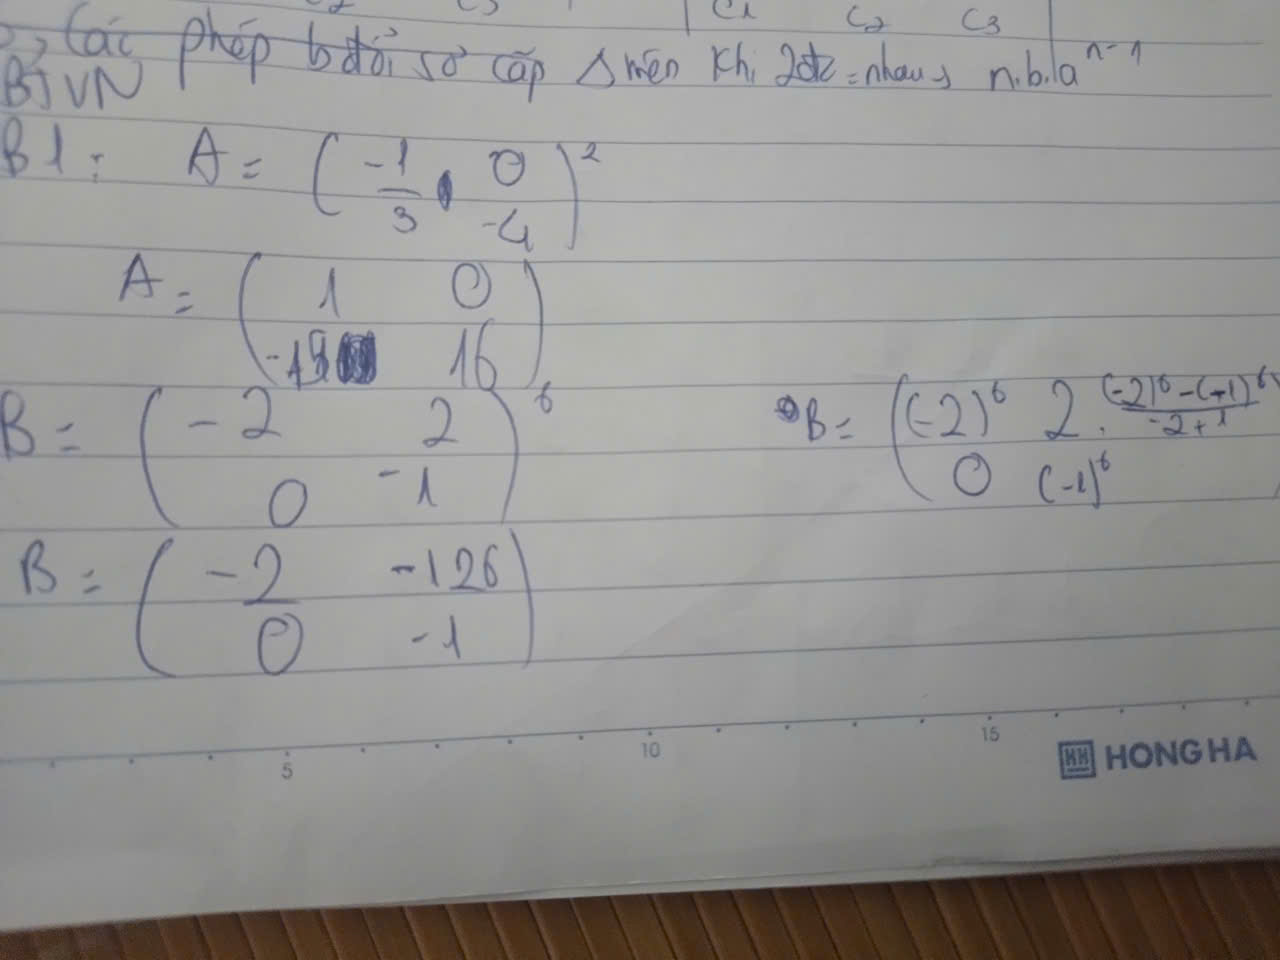 C2 C3 C1 C2 C3
Các phép b đổi sơ cấp Δ miên Khi 2đz = nhau → n.b.a^n-1
BTVN
B1: A = ( -1 0 )^2
3 -4
A = ( 1 0 )
-15 16
B = ( -2 2 )^6
0 -1
B = ( (-2)^6 2 . (-2)^6 - (+1)^6 / -2+1
0 (-1)^6
B = ( -2 -126 )
0 -1
5 10 15
HH HONG HA